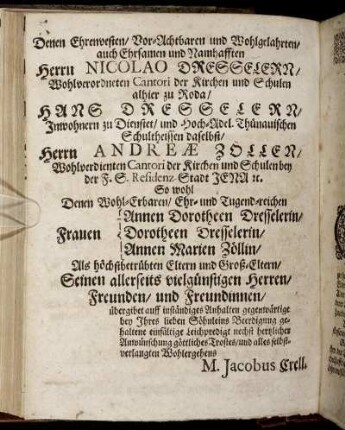 Denen Ehrenvesten/ Vor-Achtbaren und Wohlgelahrten/
auch Ehrsamen und Namhafften
Herrn NICOLAO DRESSELERN/
Wohlverordneten Cantori der Kirchen und Schulen
alhier zu Roda/
HANS DRESSELERN/
Inwohnern zu Dienstet/ und Hoch-Adel. Thünauischen
Schultheissen daselbst/
Herrn ANDREÆ ZÖLLEN/
Wohlverdienten Cantori der Kirchen und Schulen bey
der F. S. Residenz-Stadt JENA ꝛc.
So wohl
Denen Wohl-Erbaren/ Ehr- und Tugend-reichen
Annen Dorotheen Dresselerin/
Frauen Dorotheen Dresselerin/
Annen Marien Zöllin/
Als höchstbetrübten Eltern und Groß-Eltern/
Seinen allerseits vielgünstigen Herren/
Freunden/ und Freundinnen/
übergibet auff inständiges Anhalten gegenwärtige
bey Ihres lieben Söhnleins Beerdigung ge-
haltene einfältige Leichpredigt nechst hertzlicher
Anwünschung göttliches Trostes/ und alles selbst-
verlangten Wohlergehens
M. Jacobus Crell.